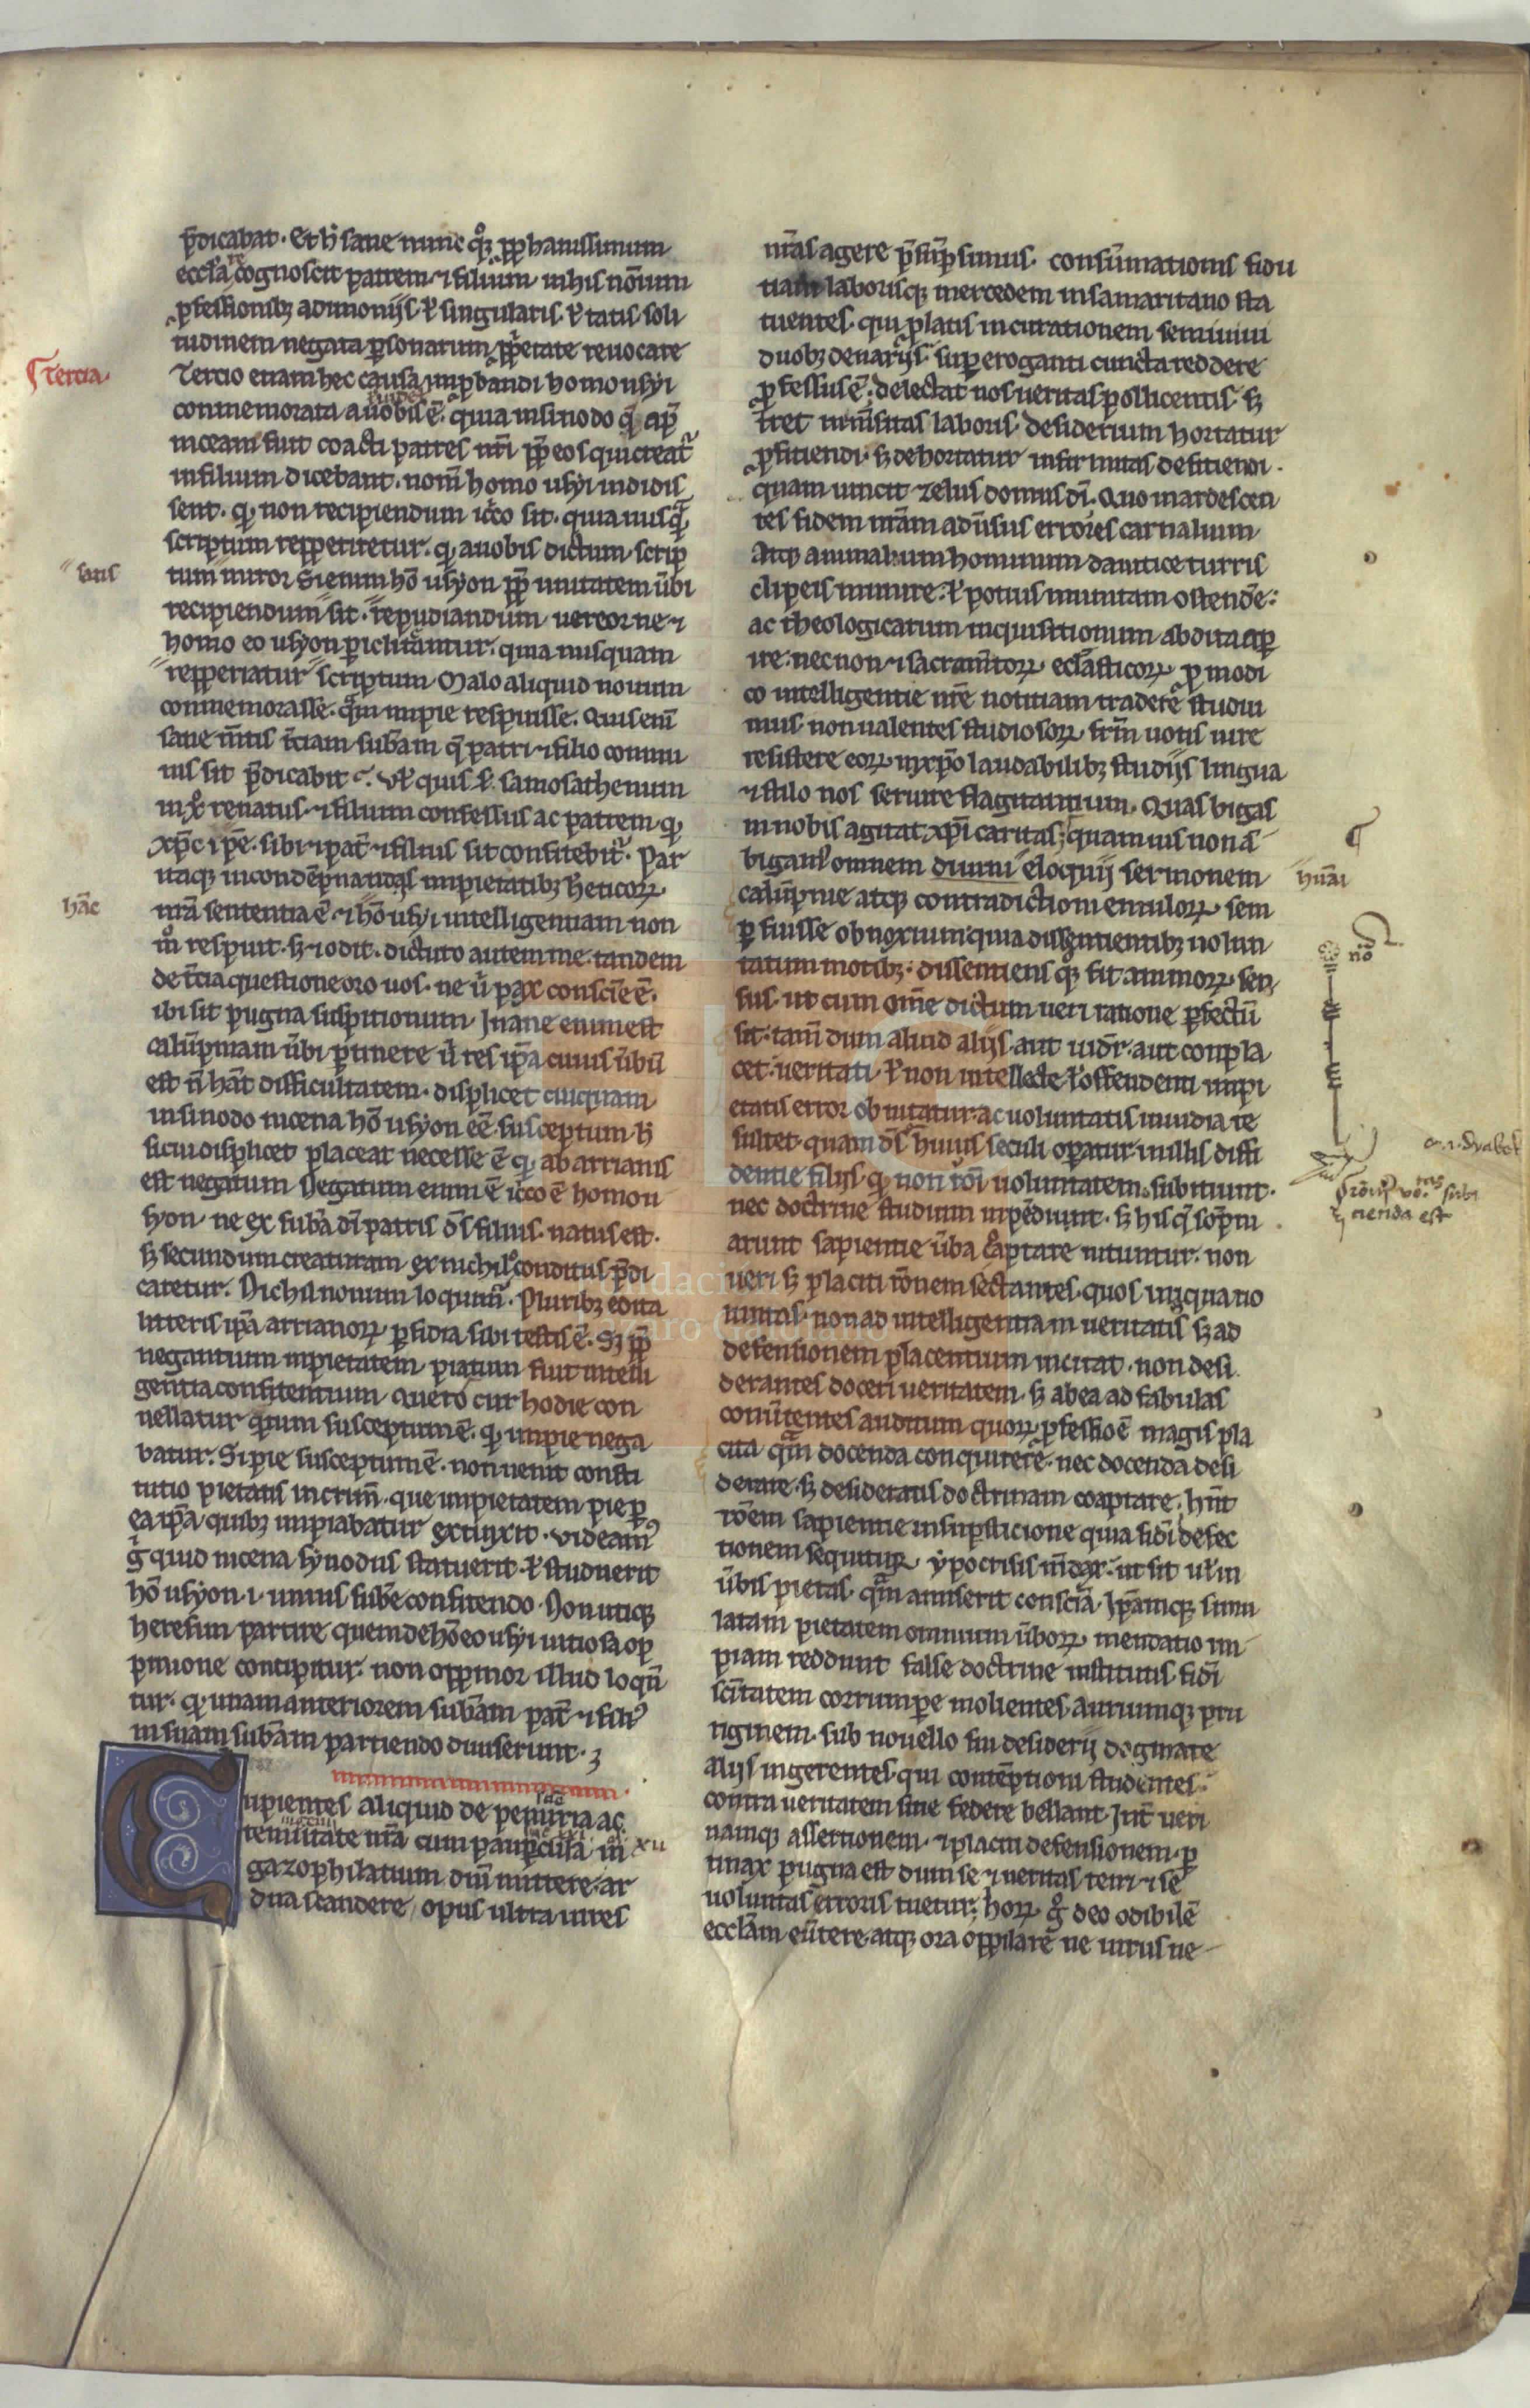 p̄dicabat. Et h̄ sane nunc qͦꝫ ꝓphanissimum
eccl'a cognoscit patrem ⁊ filium. in his nōium
ꝓfessionibꝫ adimonijs ł singularis ł tatis soli
tudinem negata ꝑsonarum ꝓp̄etate reuocare
Tercia.
Tercio etiam hec causa inprobandi homousyi
conmemorata a uobis ē. quia in sinodo q̄ ap̄
niceam fuit coacti patres nr̄i ꝓp̄ eos qui creat̄
in filium dicebant. nom̄ homo usyi indidis
sent. ꝙ non recipiendum icͦco sit. quia nusq̄
scriptum repperiretur. ꝙ a uobis dictum scrip
satis
tum miror Si enim hō usyon ꝓp̄ unitatem ūbi
recipiendum sit. repudiandum uereor ne ⁊
homo eo usyon periclitantur. quia nusquam
repperiatur scriptum Malo aliquid nouum
conmemorasse. qͣm impie respuisse. Quis eni᷒
sane m̄tis t̄ciam sub̄am q̄ patri ⁊ filio commu
nis sit p̄dicabit? Vł quis ł samosathenum
in xͦ renatus. ⁊ filium confessus ac patrem. ꝙ
xp̄c ip̄e. sibi ⁊ pat̄ ⁊ filius sit confitebit᷑. Par
itaqꝫ in condēpnandis impietatibꝫ h̄eticoꝝ
hāc
nr̄a sententia ē. ⁊ hō usyi intelligentiam non
mͦ respuit. sꝫ ⁊ odit. dicturo autem me tandem
de t̄cia questione oro uos. ne ū pax consc̄ie ē.
ibi sit pugna suspitionum. Inane enim est
calūpniam ūbi ꝑtimere ū res ip̄a cuius ūbū
est n̄ hāt difficultatem. displicet cuiquam
in sinodo nicena hō usyon eē susceptum. h̄
si cui displicet placeat necesse ē ꝙ ab arrianis
est negatum Negatum enim ē icͦco ē homou
syon. ne ex sub̄a dī patris dś filius. natus est.
sꝫ secundum creaturam ex nichilͦ conditus p̄di
caretur. Nichil nouum loquim᷒. Pluribꝫ edita
litteris ip̄a arrianoꝝ ꝑfidia sibi testis ē. Sꝫ ꝓp̄
negantium inpietatem piatum fuit intelli
gentia confitentium Quero cur hodie con
uellatur quum susceptum ē. ꝙ impie nega
batur. Si pie susceptum ē. non uenit consti
tutio pietatis in crim̄. que impietatem pie ꝑ
ea ip̄a quibꝫ impiabatur extinxit. Videam᷒
gͦ quid nicena synodus statuerit. ł studuerit
hō usyon. i. unius sub̄e confitendo. Non utiqꝫ
heresim parture quem de hō eo usyi uitiosa op
pinione concipitur. non oppinor illud loqūn
tur. ꝙ unam anteriorem sub̄am pat̄ ⁊ filii᷒
in suam sub̄am partiendo diuiserunt.
Cupientes aliquid de penuria ac
tenuitate nr̄a cum pauꝑcula in
gazophilatium dn̄i mittere. ar
dua scandere. opus ultra uires
nr̄as agere p̄sūpsimus. consūmationis fidu
tiam laborisqꝫ mercedem in samaritano sta
tuentes. qui ꝓlatis in curationem semiuiui
duobꝫ denarijs. suꝑeroganti cuncta reddere
ꝓfessus ē. delectat nos ueritas pollicentis. sꝫ
t̄ret īm̄sitas laboris. desiderium hortatur
ꝓfitiendi. sꝫ dehortatur infirmitas defitiendi.
quam uincit zelus domus dī. Quo inardescen
tes fidem nr̄am adūsus errores carnalium
atqꝫ animalium hominum dauitice turris
clipeis munire. ł potius munitam ostendē.
ac theologicarum inquisitionum abdita aꝑ
ire. nec non ⁊ sacram̄toꝝ ecl'asticoꝝ ꝓ modi
co intelligentie nr̄e notitiam tradere studui
mus. non ualentes studiosoꝝ fr̄m uotis iure
resistere eoꝝ in xp̄o laudabilibꝫ studijs lingua
⁊ stilo nos seruire flagitantium. Quas bigas
in nobis agitat xp̄i caritas; quamuis non ā
bigam᷒ omnem diuini eloquij sermonem
hūāi
calūpnie atqꝫ contradictioni emuloꝝ sem
ꝑ fuisse obnoxium. quia dissentientibꝫ uolun
nō
tatum motibꝫ. dissentiens qͦꝫ fit animoꝝ sen
sus. ut cum om̄e dictum ueri ratione ꝑfectū
sit. tam̄ dum aliud alijs aut uidr̄. aut conpla
cet. ueritati. ł non intellecte ł offendenti impi
etatis error obnitatur. ac uoluntatis inuidia re
sultet. quam dś huius seculi oꝑatur in illis diffi
dentie filijs. ꝙ non rōi uoluntatem subitiunt.
nec doctrine studium inpēdunt. sꝫ his q̄ sōpni
arunt sapientie ūba coaptare nituntur. non
ueri sꝫ placiti rōnem sectantes. quos iniqua uo
luntas. non ad intelligentiam ueritatis sꝫ ad
defensionem placentium incitat. non desi
derantes doceri ueritatem. sꝫ ab ea ad fabulas
conūtentes auditum quoꝝ ꝓfessio ē magis pla
cita qͣm docenda conquirere. nec docenda desi
derare. sꝫ desideratis doctrinam coaptare. hn̄t
rōem sapientie in suꝑsticione quia fidī defec
tionem sequitur ypocrisis m̄dax. ut sit uł in
ūbis pietas. qͣm amiserit consciā. Ip̄amqꝫ simu
latam pietatem omnium ūboꝝ mendatio im
piam reddunt false doctrine institutis fidī
sc̄itatem corrumpe molientes. auriumqꝫ pru
riginem. sub nouello sui desiderij dogmate
alijs ingerentes. qui contēptioni studentes.
contra ueritatem sine federe bellant. Int̄ ueri
namqꝫ assertionem. ⁊ placiti defensionem. ꝑ
tinax pugna est dum se ⁊ ueritas tenet ⁊ se
uoluntas erroris tuetur. hoꝝ gͦ deo odibilē
eccl'am eūtere. atqꝫ ora oppilare ne uirus ne